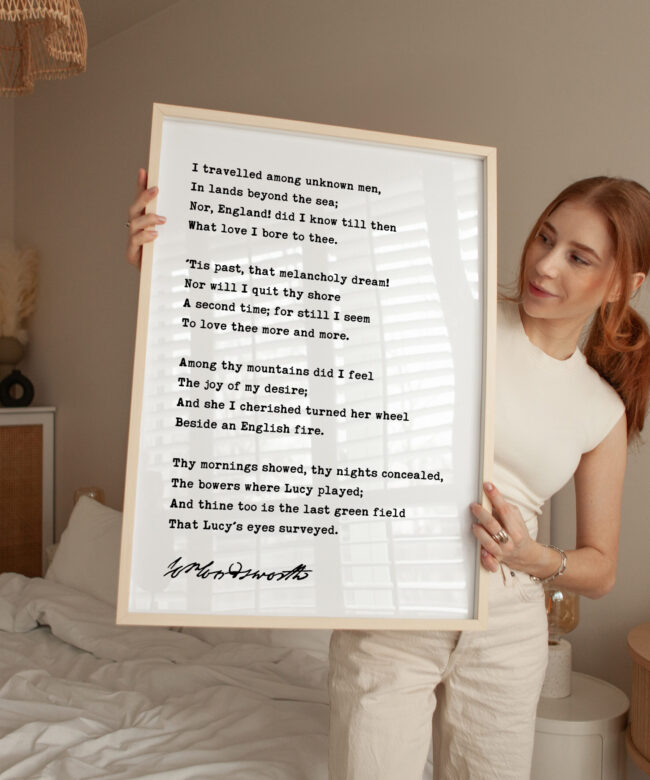 I travelled among unknown men,
In lands beyond the sea;
Nor, England! did I know till then
What love I bore to thee.
'Tis past, that melancholy dream!
Nor will I quit thy shore
A second time; for still I seem
To love thee more and more.
Among thy mountains did I feel
The joy of my desire;
And she I cherished turned her wheel
Beside an English fire.
Thy mornings showed, thy nights concealed,
The bowers where Lucy played;
And thine too is the last green field
That Lucy's eyes surveyed.
Wm Wordsworth